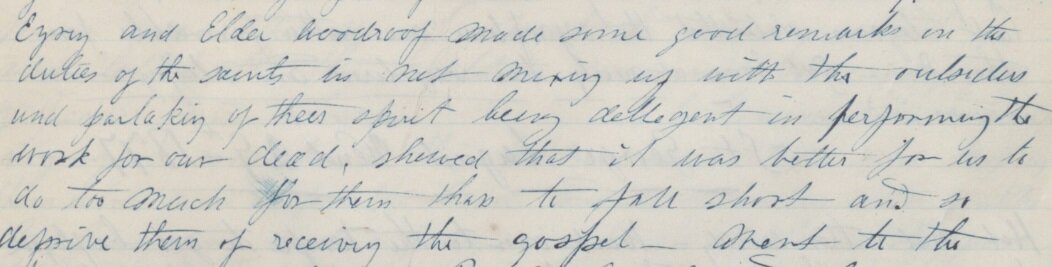 and Elder Woodroof made some good remarks on the
duties of the saints in not mixing up with the outsiders
and partaking of thees spirit being dellegent in performing the
work for our dead, shewed that it was better for us to
do too much for them than to fall short and so
deprive them of receiving the gospel — went to the